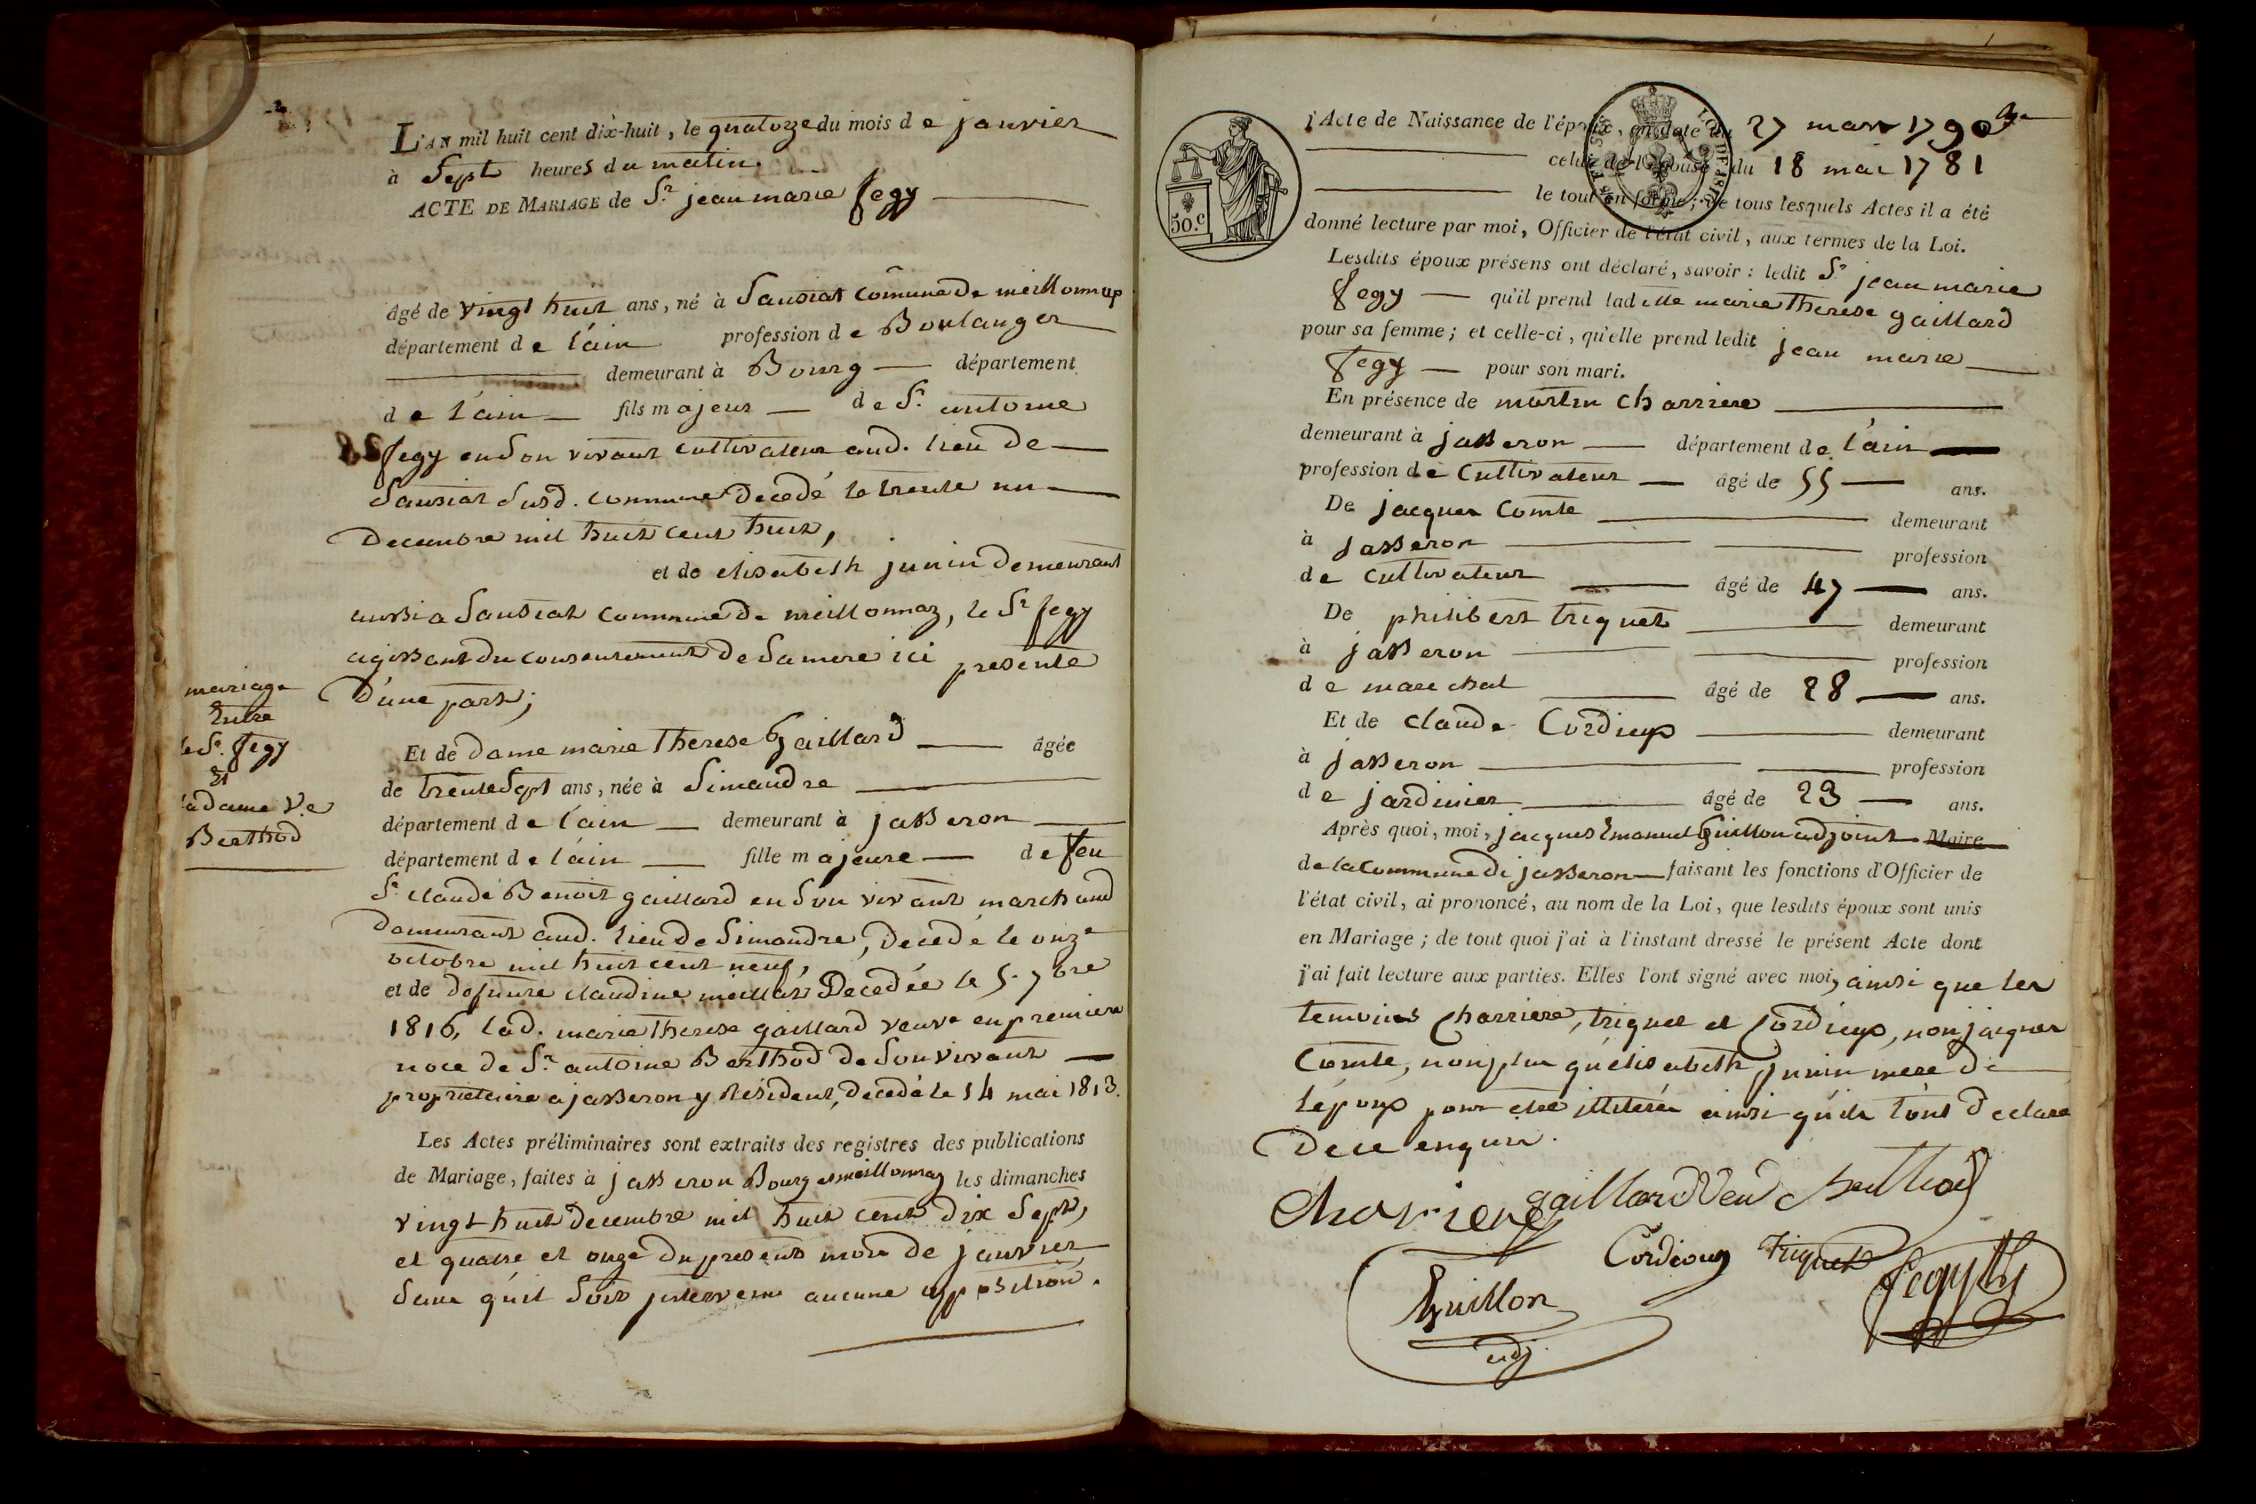 L'AN mil huit cent dix-huit, le quatorze du mois de janvier
à Sept heures du matin.
ACTE DE MARIAGE de Sr. jean marie fegy
âgé de vingt huit ans, né à Sanciat commune de meillonnas
département de l'ain profession de Boulanger
demeurant à Bourg département
de l'ain fils majeur de Sr. antoine
fegy en Son vivant cultivateur aud. lieu de
Sanciat Susd. commune décedé le trente un
Decembre mil huit cent huit,
et de elisabeth junin demeurant
aussi a Sanciat commune de meillonnaz, le Sr. fegy
agissant du consentement de Sa mere ici présente
D'une part;
mariage
Entre
le Sr. fegy
Et
la dame Ve.
Berthod
Et de dame marie Therese Gaillard âgée
de trente Sept ans, née à Simandre
département de l'ain demeurant à jasseron
département de l'ain fille majeure de feu
Sr. claude Benoit gaillard en Son vivant marchand
demeurant aud. lieu de Simandre, décedé le onze
octobre mil huit cent neuf,
et de defunte claudine meillat Decedée le 5. 7bre
1816, lad. marie therese gaillard veuve en premiere
noce de Sr. antoine Berthod de Son vivant
proprietaire a jasseron y Résident, décedé le 14 mai 1813.
Les Actes préliminaires sont extraits des registres des publications
de Mariage, faites à jasseron Bourg et meillonnaz les dimanches
vingt huit decembre mil huit cent dix Sept,
et quatre et onze du présent mois de janvier
Sans qu'il Soit intervenu aucune opposition.
l'Acte de Naissance de l'époux, en date du 27 mars 1790
celui de l'épouse du 18 mai 1781
50.c
le tout en forme; de tous lesquels Actes il a été
donné lecture par moi, Officier de l'état civil, aux termes de la Loi.
Lesdits époux présens ont déclaré, savoir: ledit Sr. jean marie
fegy qu'il prend ladite marie Therese gaillard
pour sa femme; et celle-ci, qu'elle prend ledit jean marie
fegy pour son mari.
En présence de martin charriere
demeurant à jasseron département de l'ain
profession de Cultivateur âgé de 55 ans.
De jacques Comte demeurant
à jasseron profession
de cultivateur âgé de 47 ans.
De philibert triquet demeurant
à jasseron profession
de marechal âgé de 28 ans.
Et de claude Cordieux demeurant
à jasseron profession
de jardinier âgé de 23 ans.
Après quoi, moi, jacques Emanuel Guillon adjoint Maire
de la Commune de jasseron faisant les fonctions d'Officier de
l'état civil, ai prononcé, au nom de la Loi, que lesdits époux sont unis
en Mariage; de tout quoi j'ai à l'instant dressé le présent Acte dont
j'ai fait lecture aux parties. Elles l'ont signé avec moi, ainsi que les
temoins Charriere, triquet et Cordieux, non jacques
Comte, non plus qu'elisabeth junin mere de
l'époux pour etre illiterés ainsi qu'ils l'ont declaré
De ce enquis.
charriere gaillard Veu berthod
Cordieux Triquet fegy
Guillon
adj